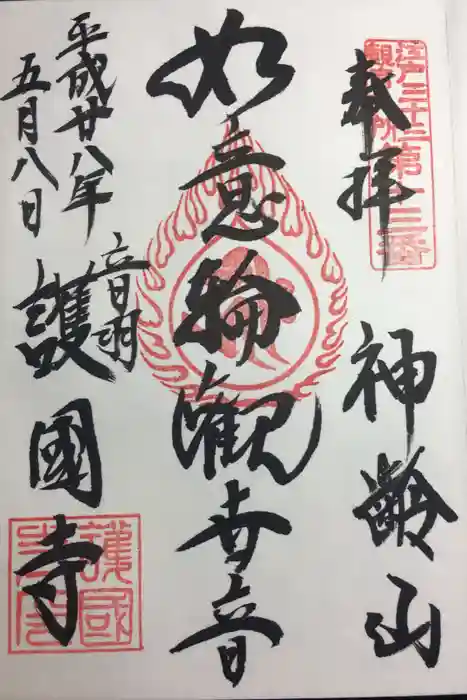 奉拝
江戸三十三観音札所第十三番
神齢山
如意輪観世音
平成廿八年
五月八日
音羽
護國寺
護國